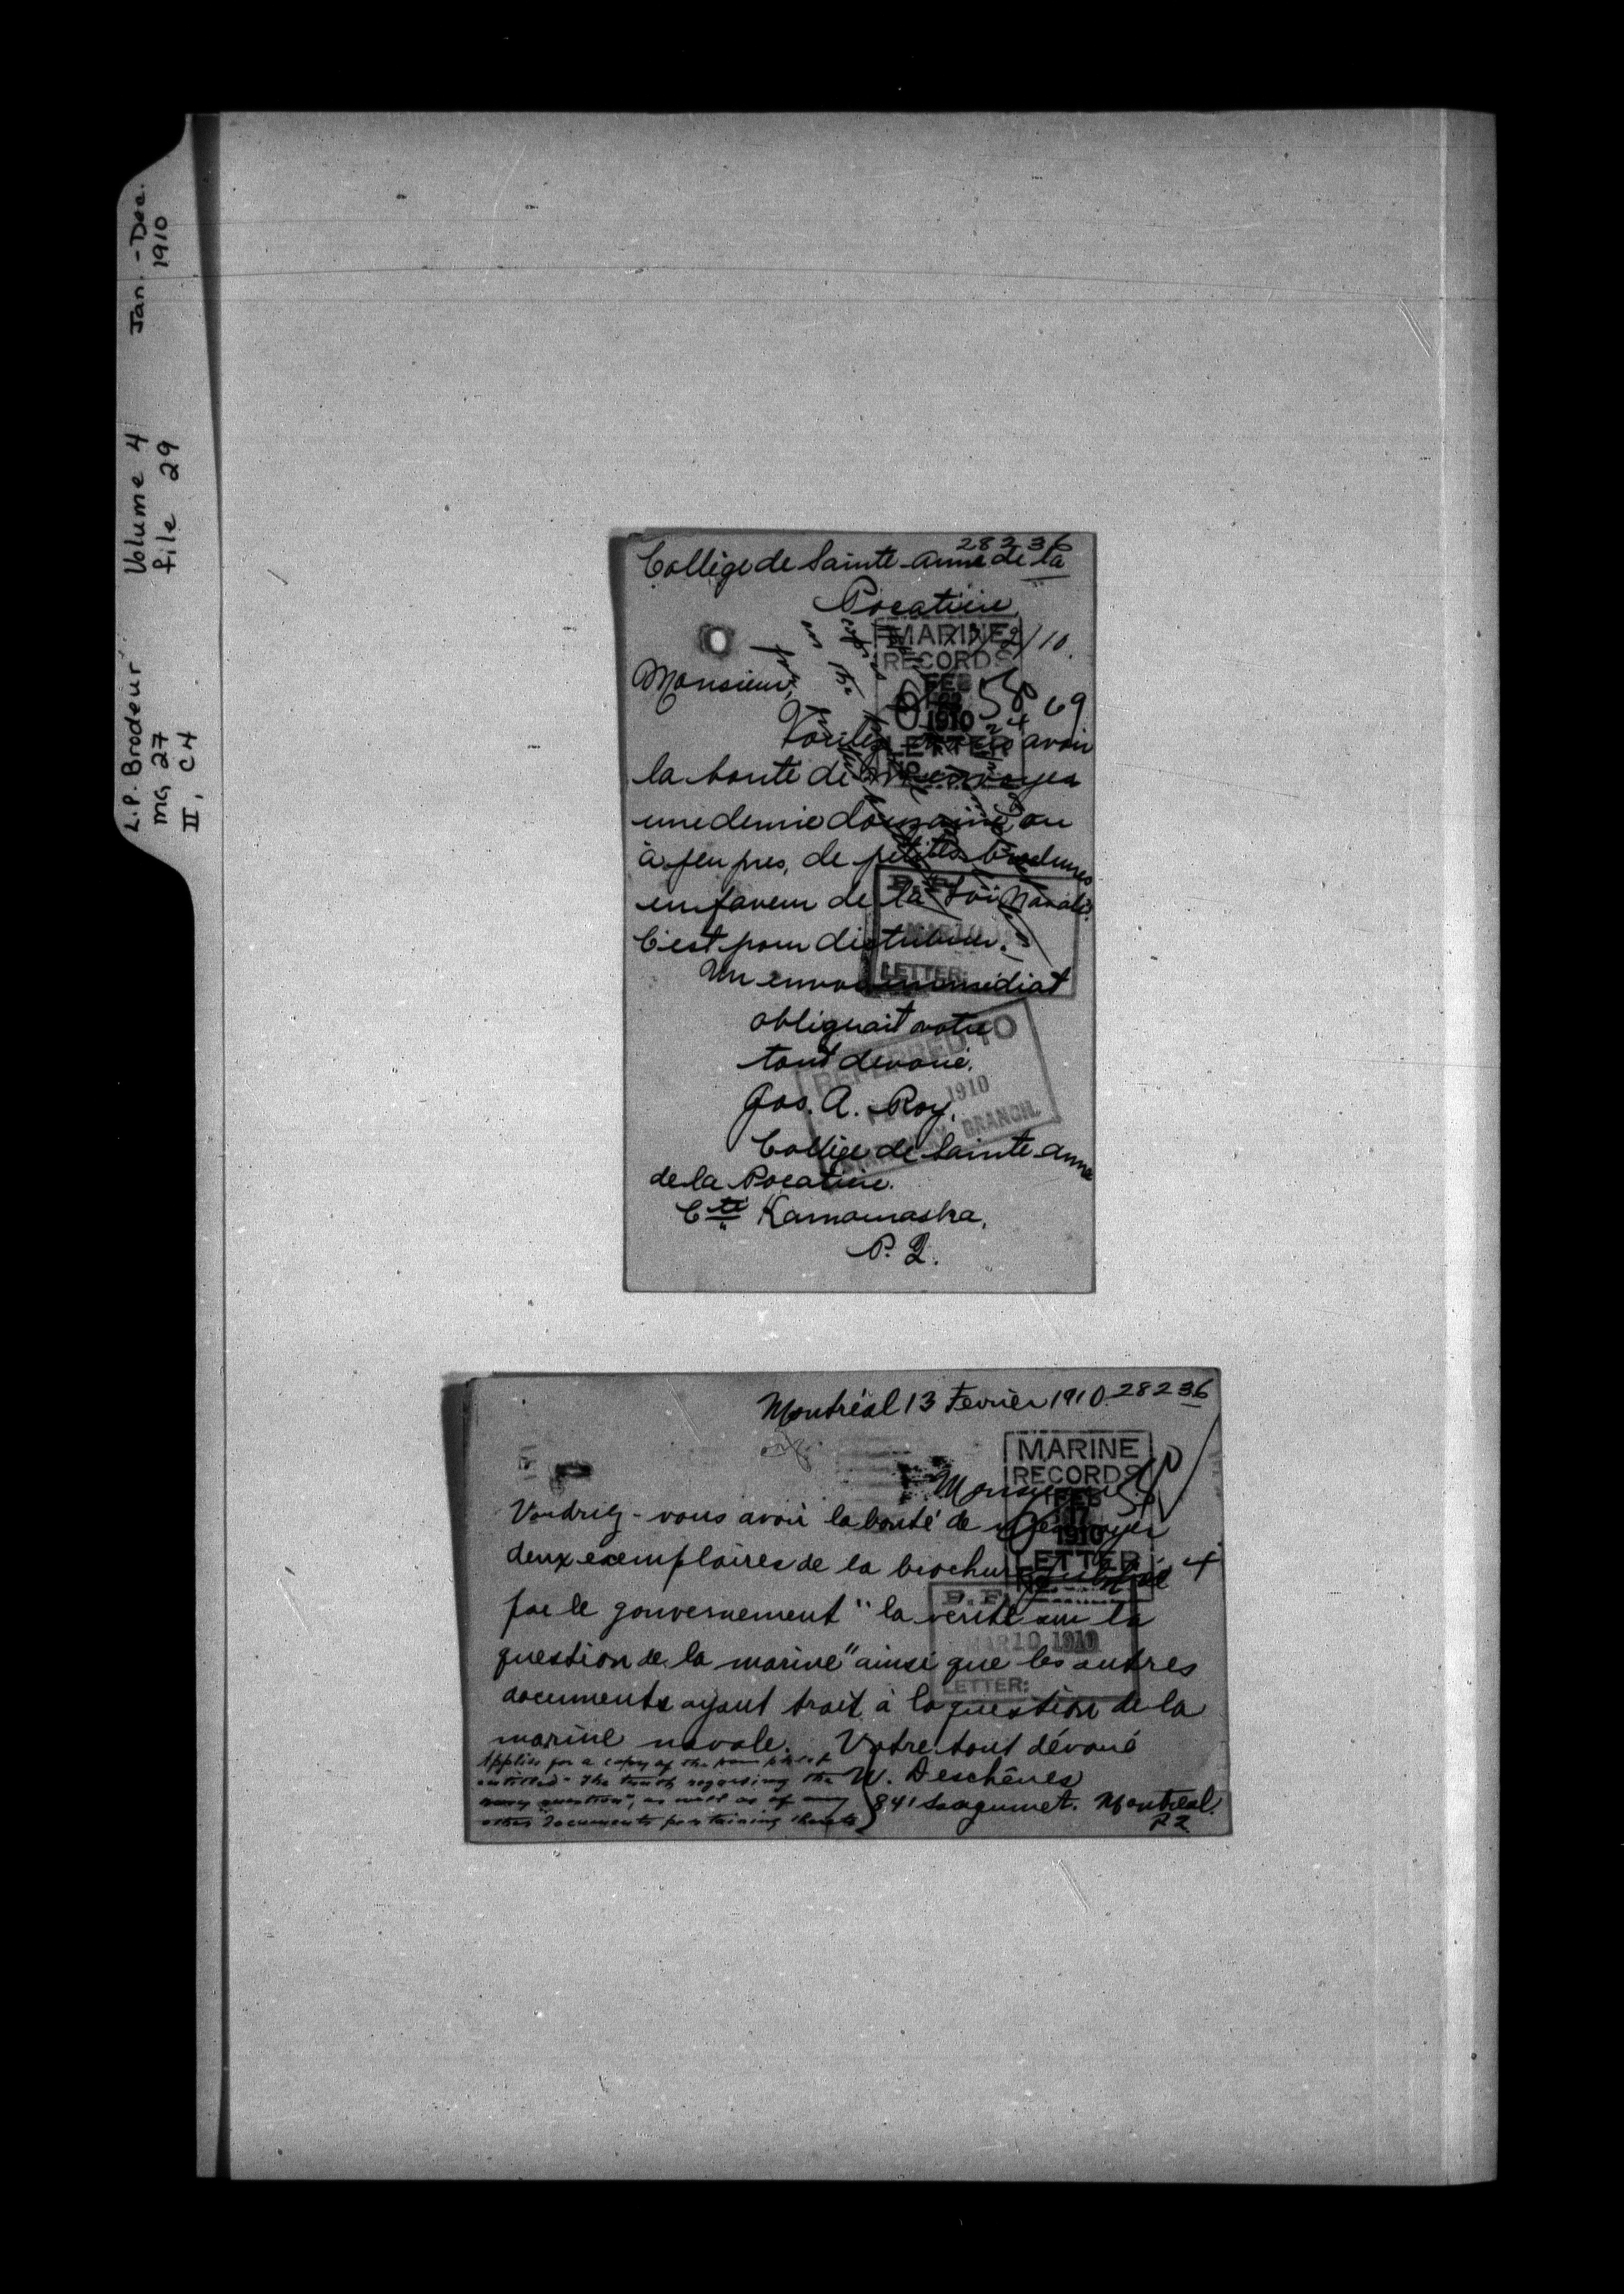 L.P. Brodeur Volume 4 Jan. - Dec.
MG 27 file 29 1910
II, C4
28236
Collège de Sainte-Anne de la
Pocatière
/2/10.
MARINE
RECORDS
FEB
22
1910
LETTER
No
Monsieur,
69
avoir
la bonté de m'envoyer
une demie douzaine ou
à peu pres, de petites brochures
en faveur de la Loi Navale.
C'est pour distribuer.
LETTER:
Un envoi immédiat
obligerait votre
tout dévoué.
REFERRED TO
1910
BRANCH.
Jos. A. Roy.
Collège de Sainte-Anne
de la Pocatière.
Cté Kamouraska,
P. Q.
Montréal 13 Fevrier 1910. 28236
MARINE
RECORDS
FEB
17
1910
LETTER
No
Monsieur
Voudriez-vous avoir la bonté de m'envoyer
deux exemplaires de la brochure publiée
par le gouvernement "la verité sur la
D.F.
MAR 10 1910
LETTER:
question de la marine" ainsi que les autres
documents ayant trait à la question de la
marine navale. Votre tout dévoué
W. Deschênes
841 Sanguinet. Montreal.
P Q
Applies for a copy of the pamphlet
entitled - The truth regarding the
navy question", as well as of any
other documents pertaining thereto